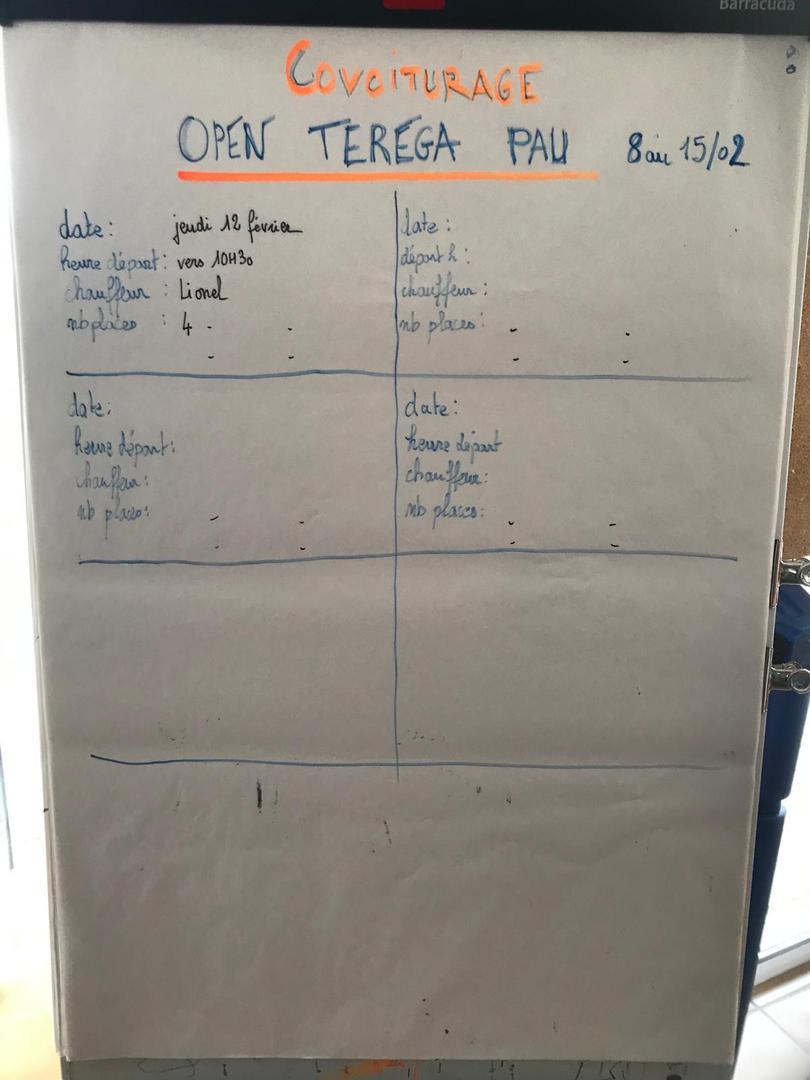 Barracuda
COVOITURAGE
OPEN TEREGA PAU 8 au 15/02
date : jeudi 12 février
heure départ : vers 10H30
chauffeur : Lionel
nb places : 4 - -
- -
date :
départ h :
chauffeur :
nb places : - -
- -
date :
heure départ :
chauffeur :
nb places : - -
- -
date :
heure départ
chauffeur :
nb places : - -
- -